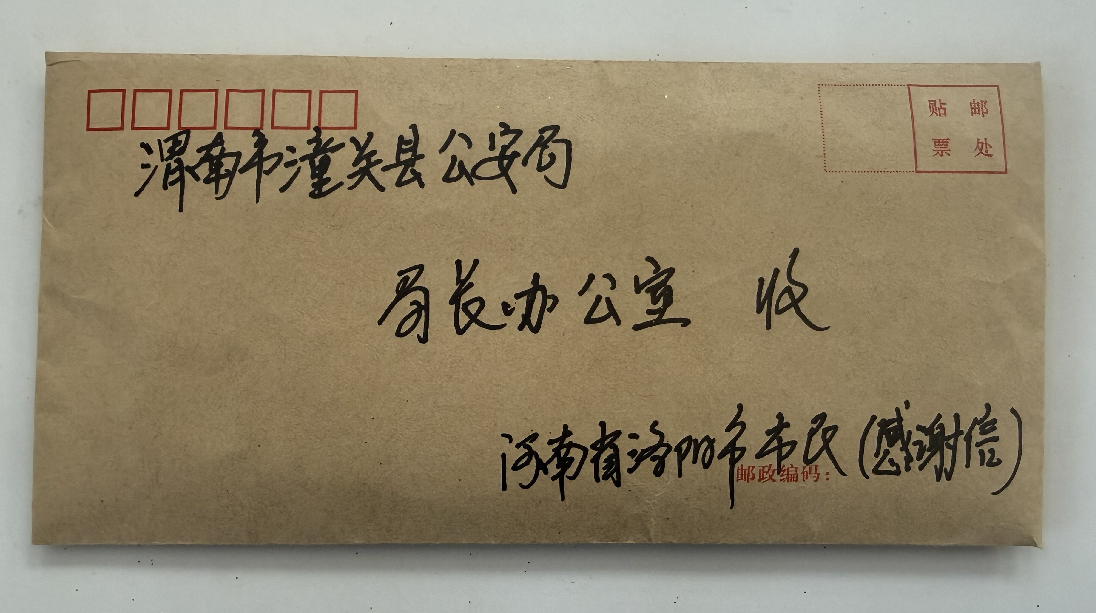 贴 邮
票 处
渭南市潼关县公安局
局长办公室 收
河南省洛阳市市民(感谢信)
邮政编码: